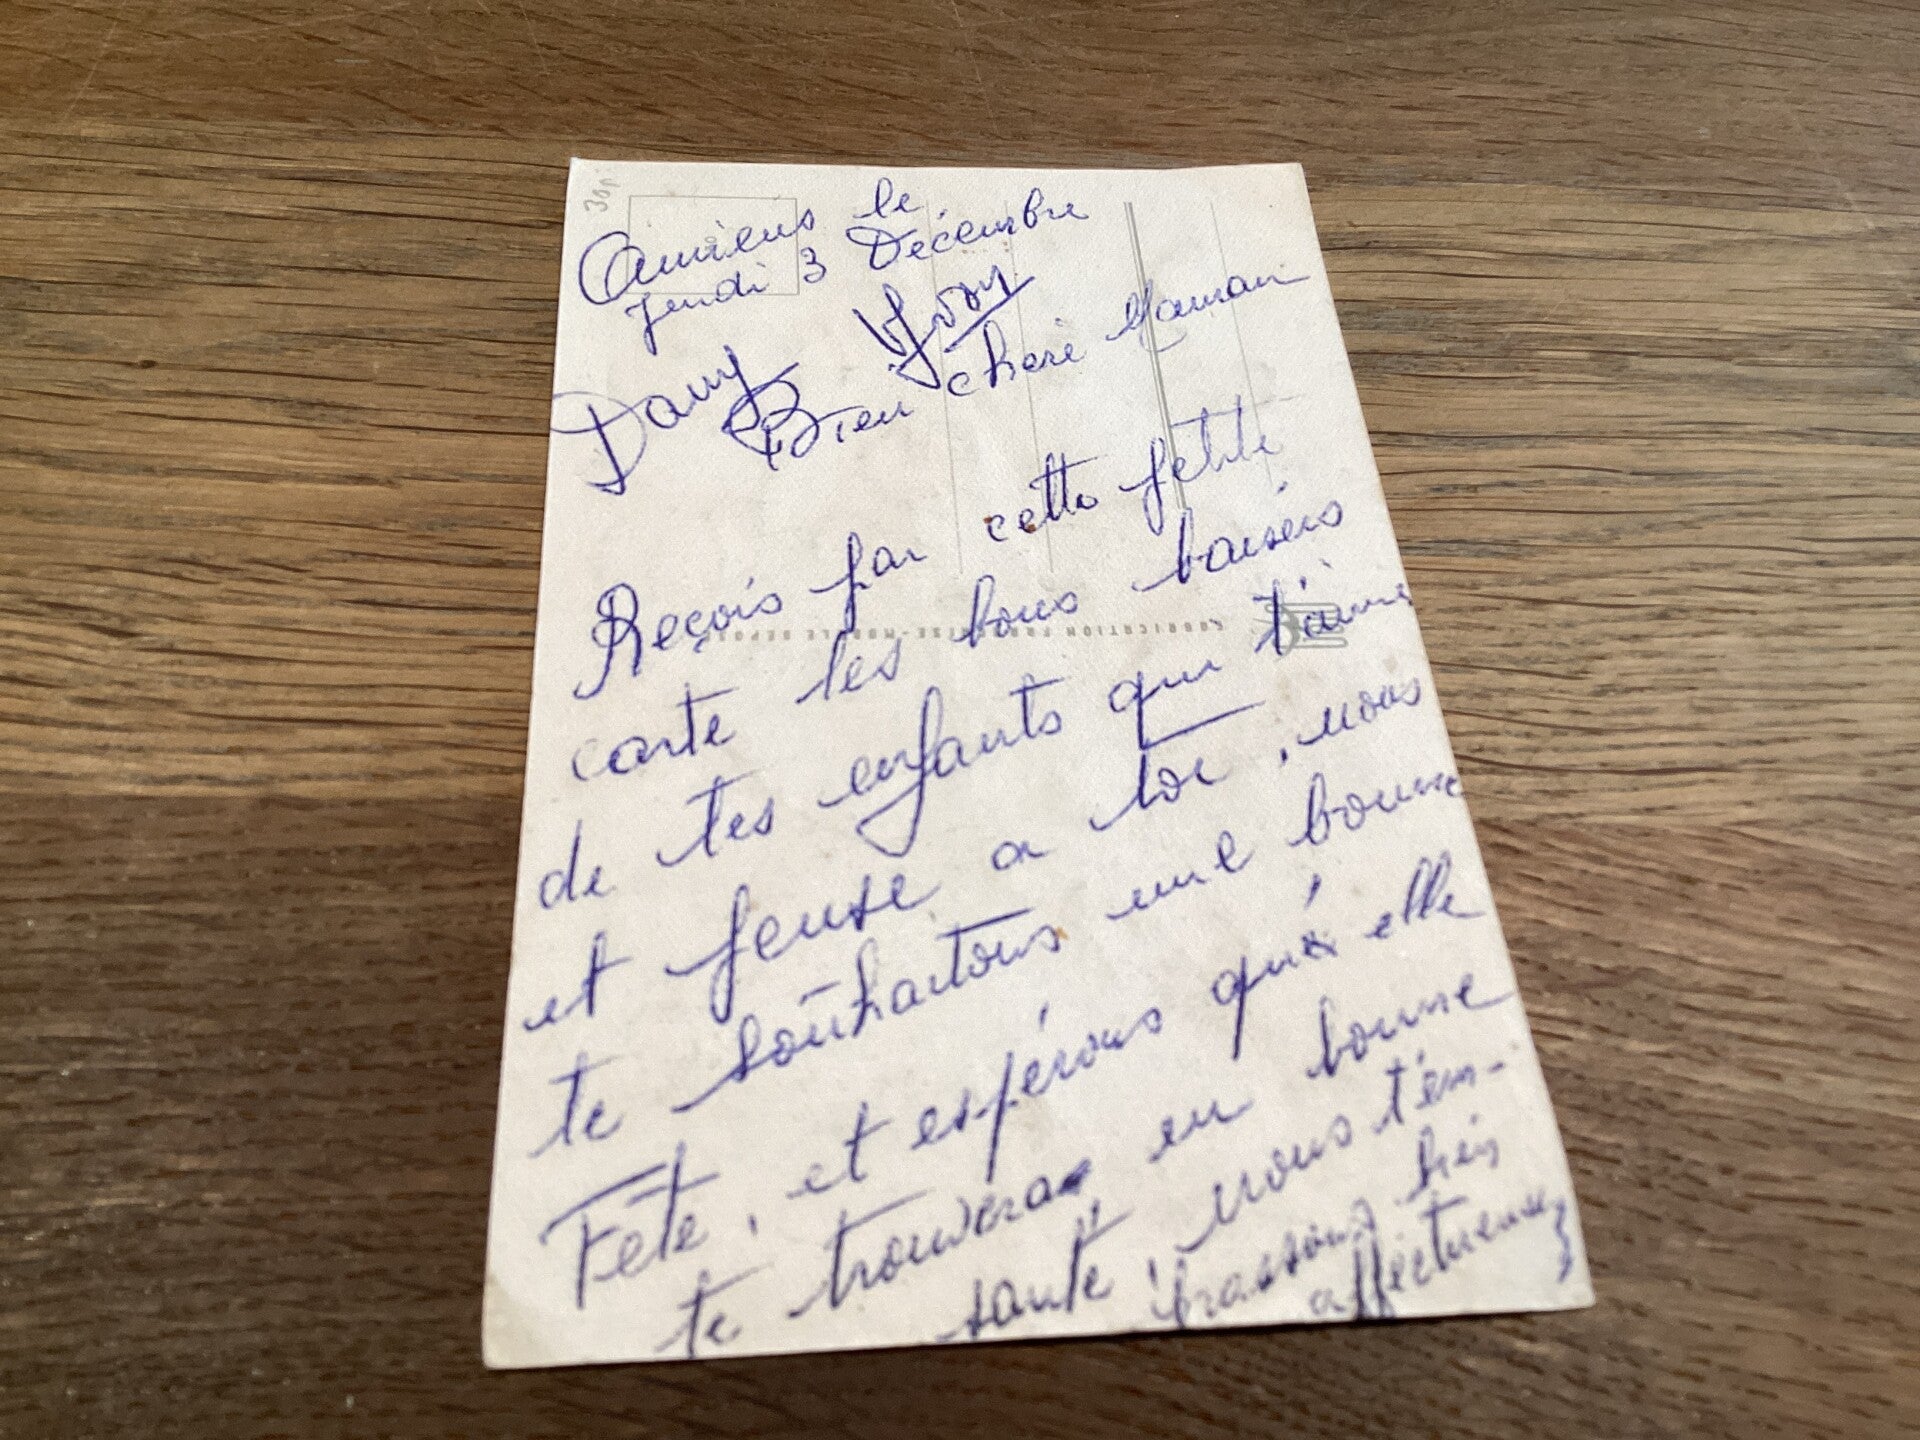 Amiens le
Jeudi 3 Décembre
Dany Yvon
Bien cheré Maman
Reçois par cette petite
carte les bons baisers
de tes enfants qui t'aime
et pense a toi, nous
te souhaitons une bonne
Fête, et espérons qu' elle
te trouvera en bonne
santé, nous t'em-
brassons bien
affectueuse
FABRICATION
30F